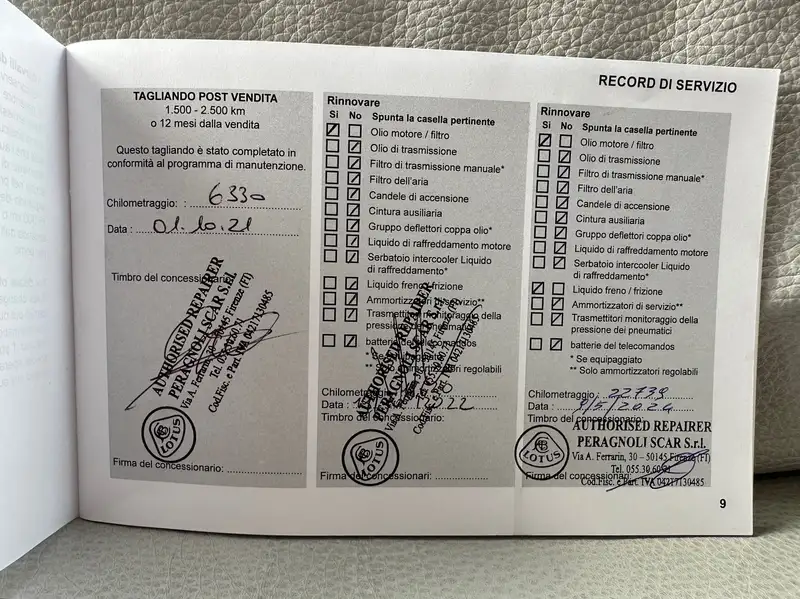 RECORD DI SERVIZIO
TAGLIANDO POST VENDITA
1.500 - 2.500 km
o 12 mesi dalla vendita
Questo tagliando è stato completato in
conformità al programma di manutenzione.
Chilometraggio: : 6330
Data : 01.10.21
Timbro del concessionario:
AUTHORISED REPAIRER
PERAGNOLI SCAR S.r.l.
Via A. Ferrarin, 30 - 50145 Firenze (FI)
Cod.Fisc. e Part. IVA 04217130485
LOTUS
Firma del concessionario:
Rinnovare
Si No Spunta la casella pertinente
Olio motore / filtro
Olio di trasmissione
Filtro di trasmissione manuale*
Filtro dell'aria
Candele di accensione
Cintura ausiliaria
Gruppo deflettori coppa olio*
Liquido di raffreddamento motore
Serbatoio intercooler Liquido
di raffreddamento*
Liquido freno / frizione
Ammortizzatori di servizio**
Trasmettitori monitoraggio della
pressione dei pneumatici
batterie del telecomandos
* Se equipaggiato
** Solo ammortizzatori regolabili
Chilometraggio
Data :
Timbro del concessionario:
AUTHORISED REPAIRER
PERAGNOLI SCAR S.r.l.
LOTUS
Firma del concessionari:
Rinnovare
Si No Spunta la casella pertinente
Olio motore / filtro
Olio di trasmissione
Filtro di trasmissione manuale*
Filtro dell'aria
Candele di accensione
Cintura ausiliaria
Gruppo deflettori coppa olio*
Liquido di raffreddamento motore
Serbatoio intercooler Liquido
di raffreddamento*
Liquido freno / frizione
Ammortizzatori di servizio**
Trasmettitori monitoraggio della
pressione dei pneumatici
batterie del telecomandos
* Se equipaggiato
** Solo ammortizzatori regolabili
Chilometraggio : 22739
Data : /5/2024
Timbro del concessionario:
AUTHORISED REPAIRER
PERAGNOLI SCAR S.r.l.
Via A. Ferrarin, 30 – 50145 Firenze (FI)
Tel. 055.30
Cod.Fisc. e Part. IVA 04217130485
LOTUS
Firma del concessionari:
9